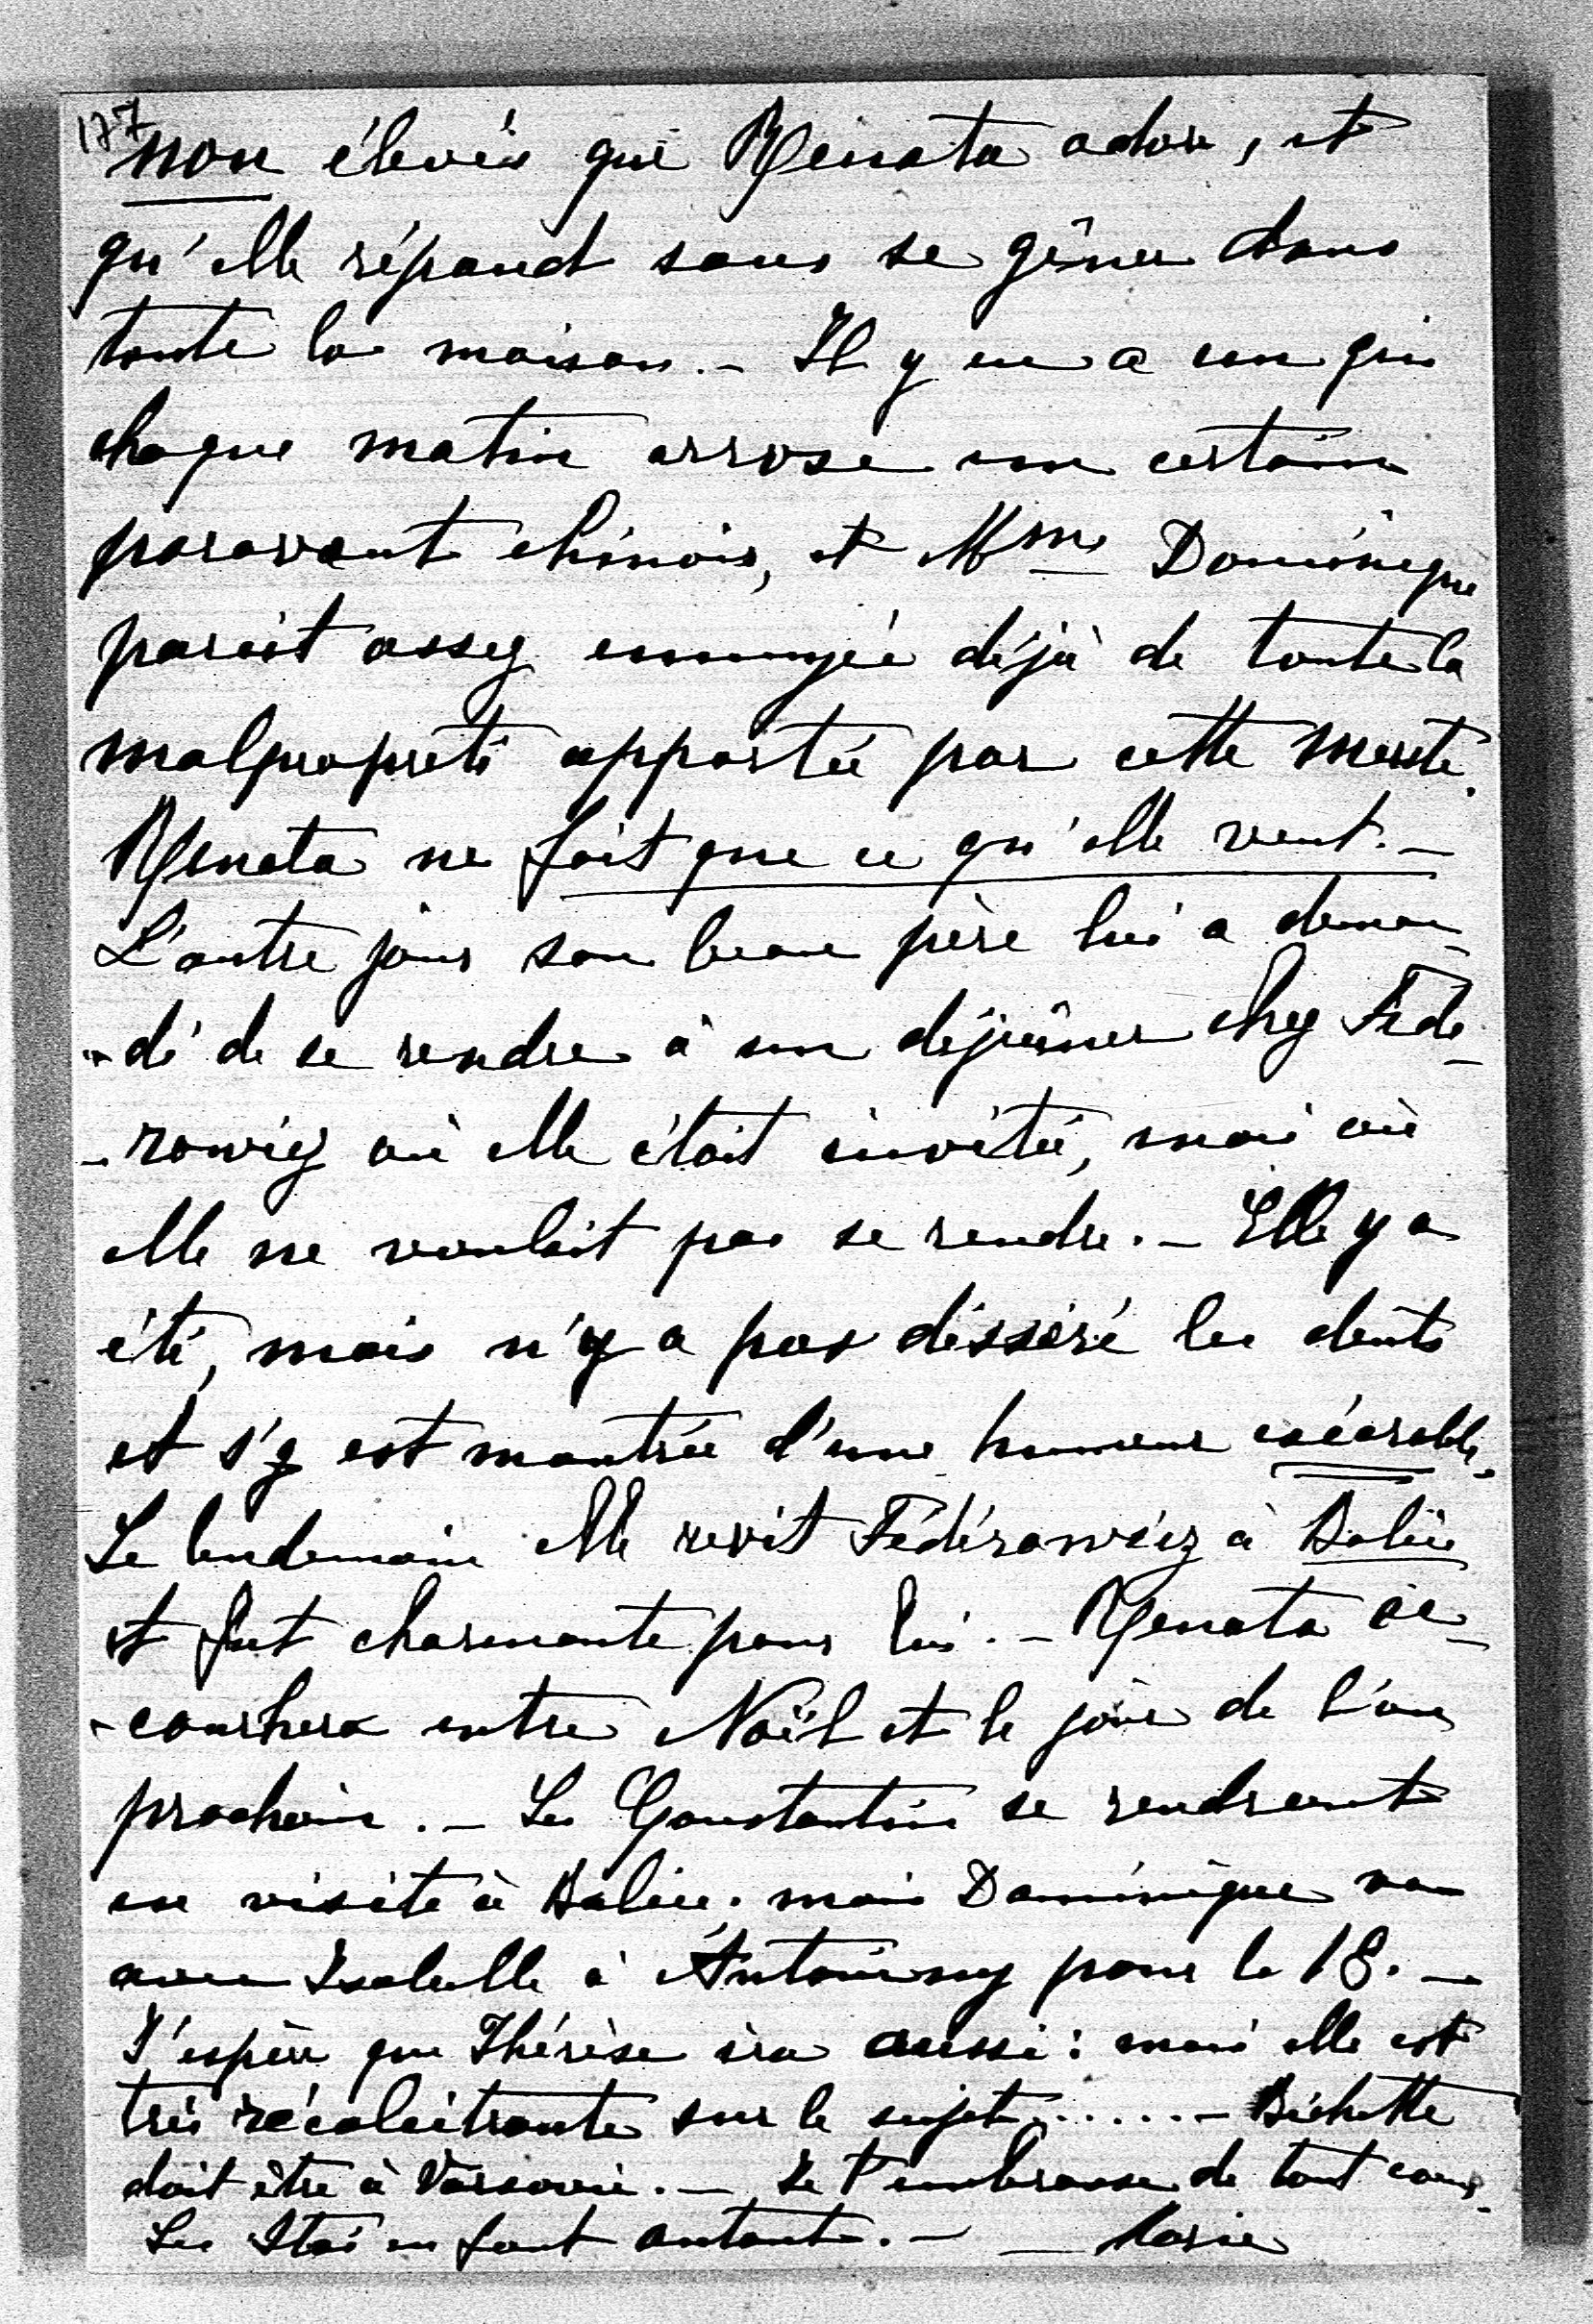 177
non élevés que Renata adore, et
qu'elle répand sans se gêner dans
toute la maison. — Il y en a un qui
chaque matin arrose un certain
paravent chinois, et Mme Dominique
parait assez ennuyée déjà de toute la
malpropreté apportée par cette meute.
Renata ne fait que ce qu'elle veut. —
L'autre jour son beau père lui a deman-
-dé de se rendre à un déjeûner chez Féde-
-rowiez où elle était invitée, mais où
elle ne voulait pas se rendre. — Elle y a
été, mais n'y a pas désséré les dents
et s'y est montrée d'une humeur exécrable.
Le lendemain elle revit Fédérowiez à Balice
et fut charmante pour lui. — Renata ac-
-couchera entre Noël et le jour de l'an
prochain. — Les Constantin se rendront
en visite à Balice. mais Dominique va
avec Isabelle à Antoniny pour le 18. —
J'espère que Thérèse ira aussi : mais elle est
très récalcitrante sur le sujet...... — Bichette
doit être à Varsovie. — Je t'embrasse de tout cœur.
Les Staś en font autant. — — Marie